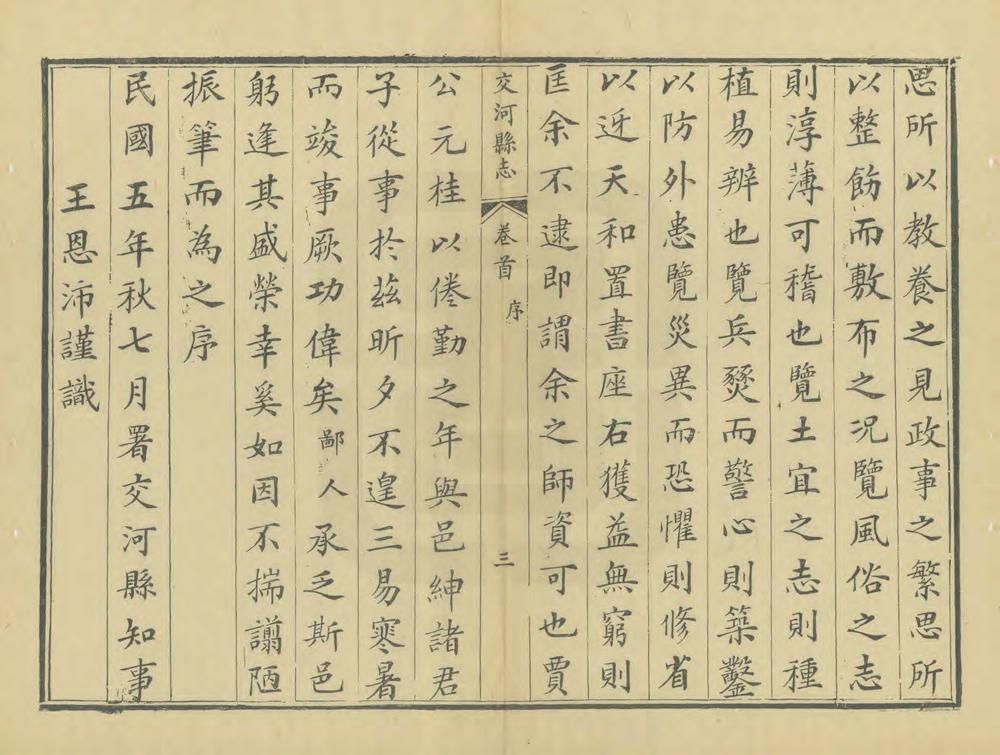 思所以教養之見政事之繁思所
以整飭而敷布之况覽風俗之志
則淳薄可稽也覽土宜之志則種
植易辨也覽兵燹而警心則築鑿
以防外患覽災異而恐懼則修省
以迓天和置書座右獲益無窮則
匡余不逮即謂余之師資可也賈
交河縣志 卷首 序 三
公元桂以倦勤之年與邑紳諸君
子從事於兹昕夕不遑三易寒暑
而竣事厥功偉矣鄙人承乏斯邑
躬逢其盛榮幸奚如因不揣譾陋
振筆而為之序
民國五年秋七月署交河縣知事
王恩沛謹識